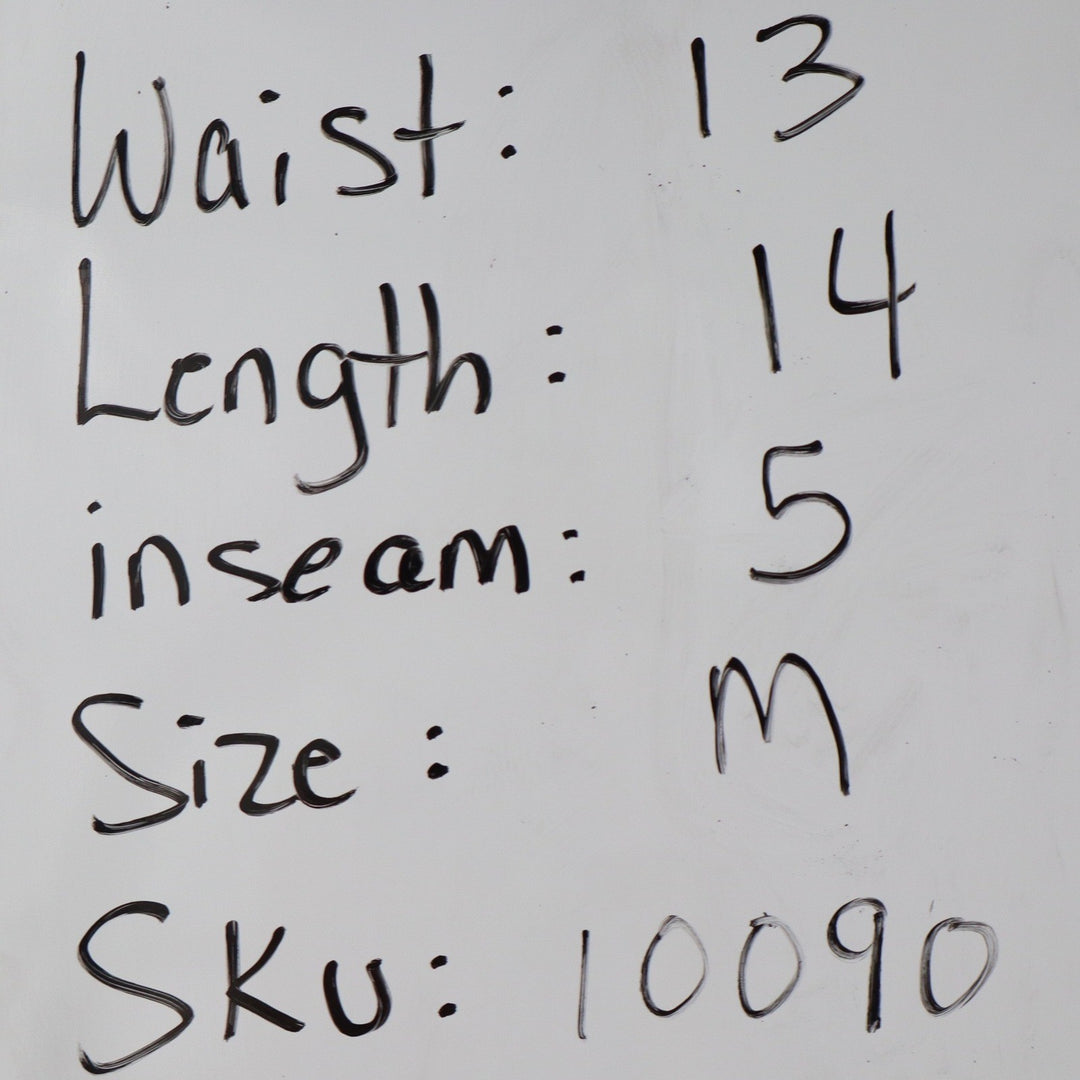 Waist: 13
Length: 14
inseam: 5
Size: M
SKU: 10090